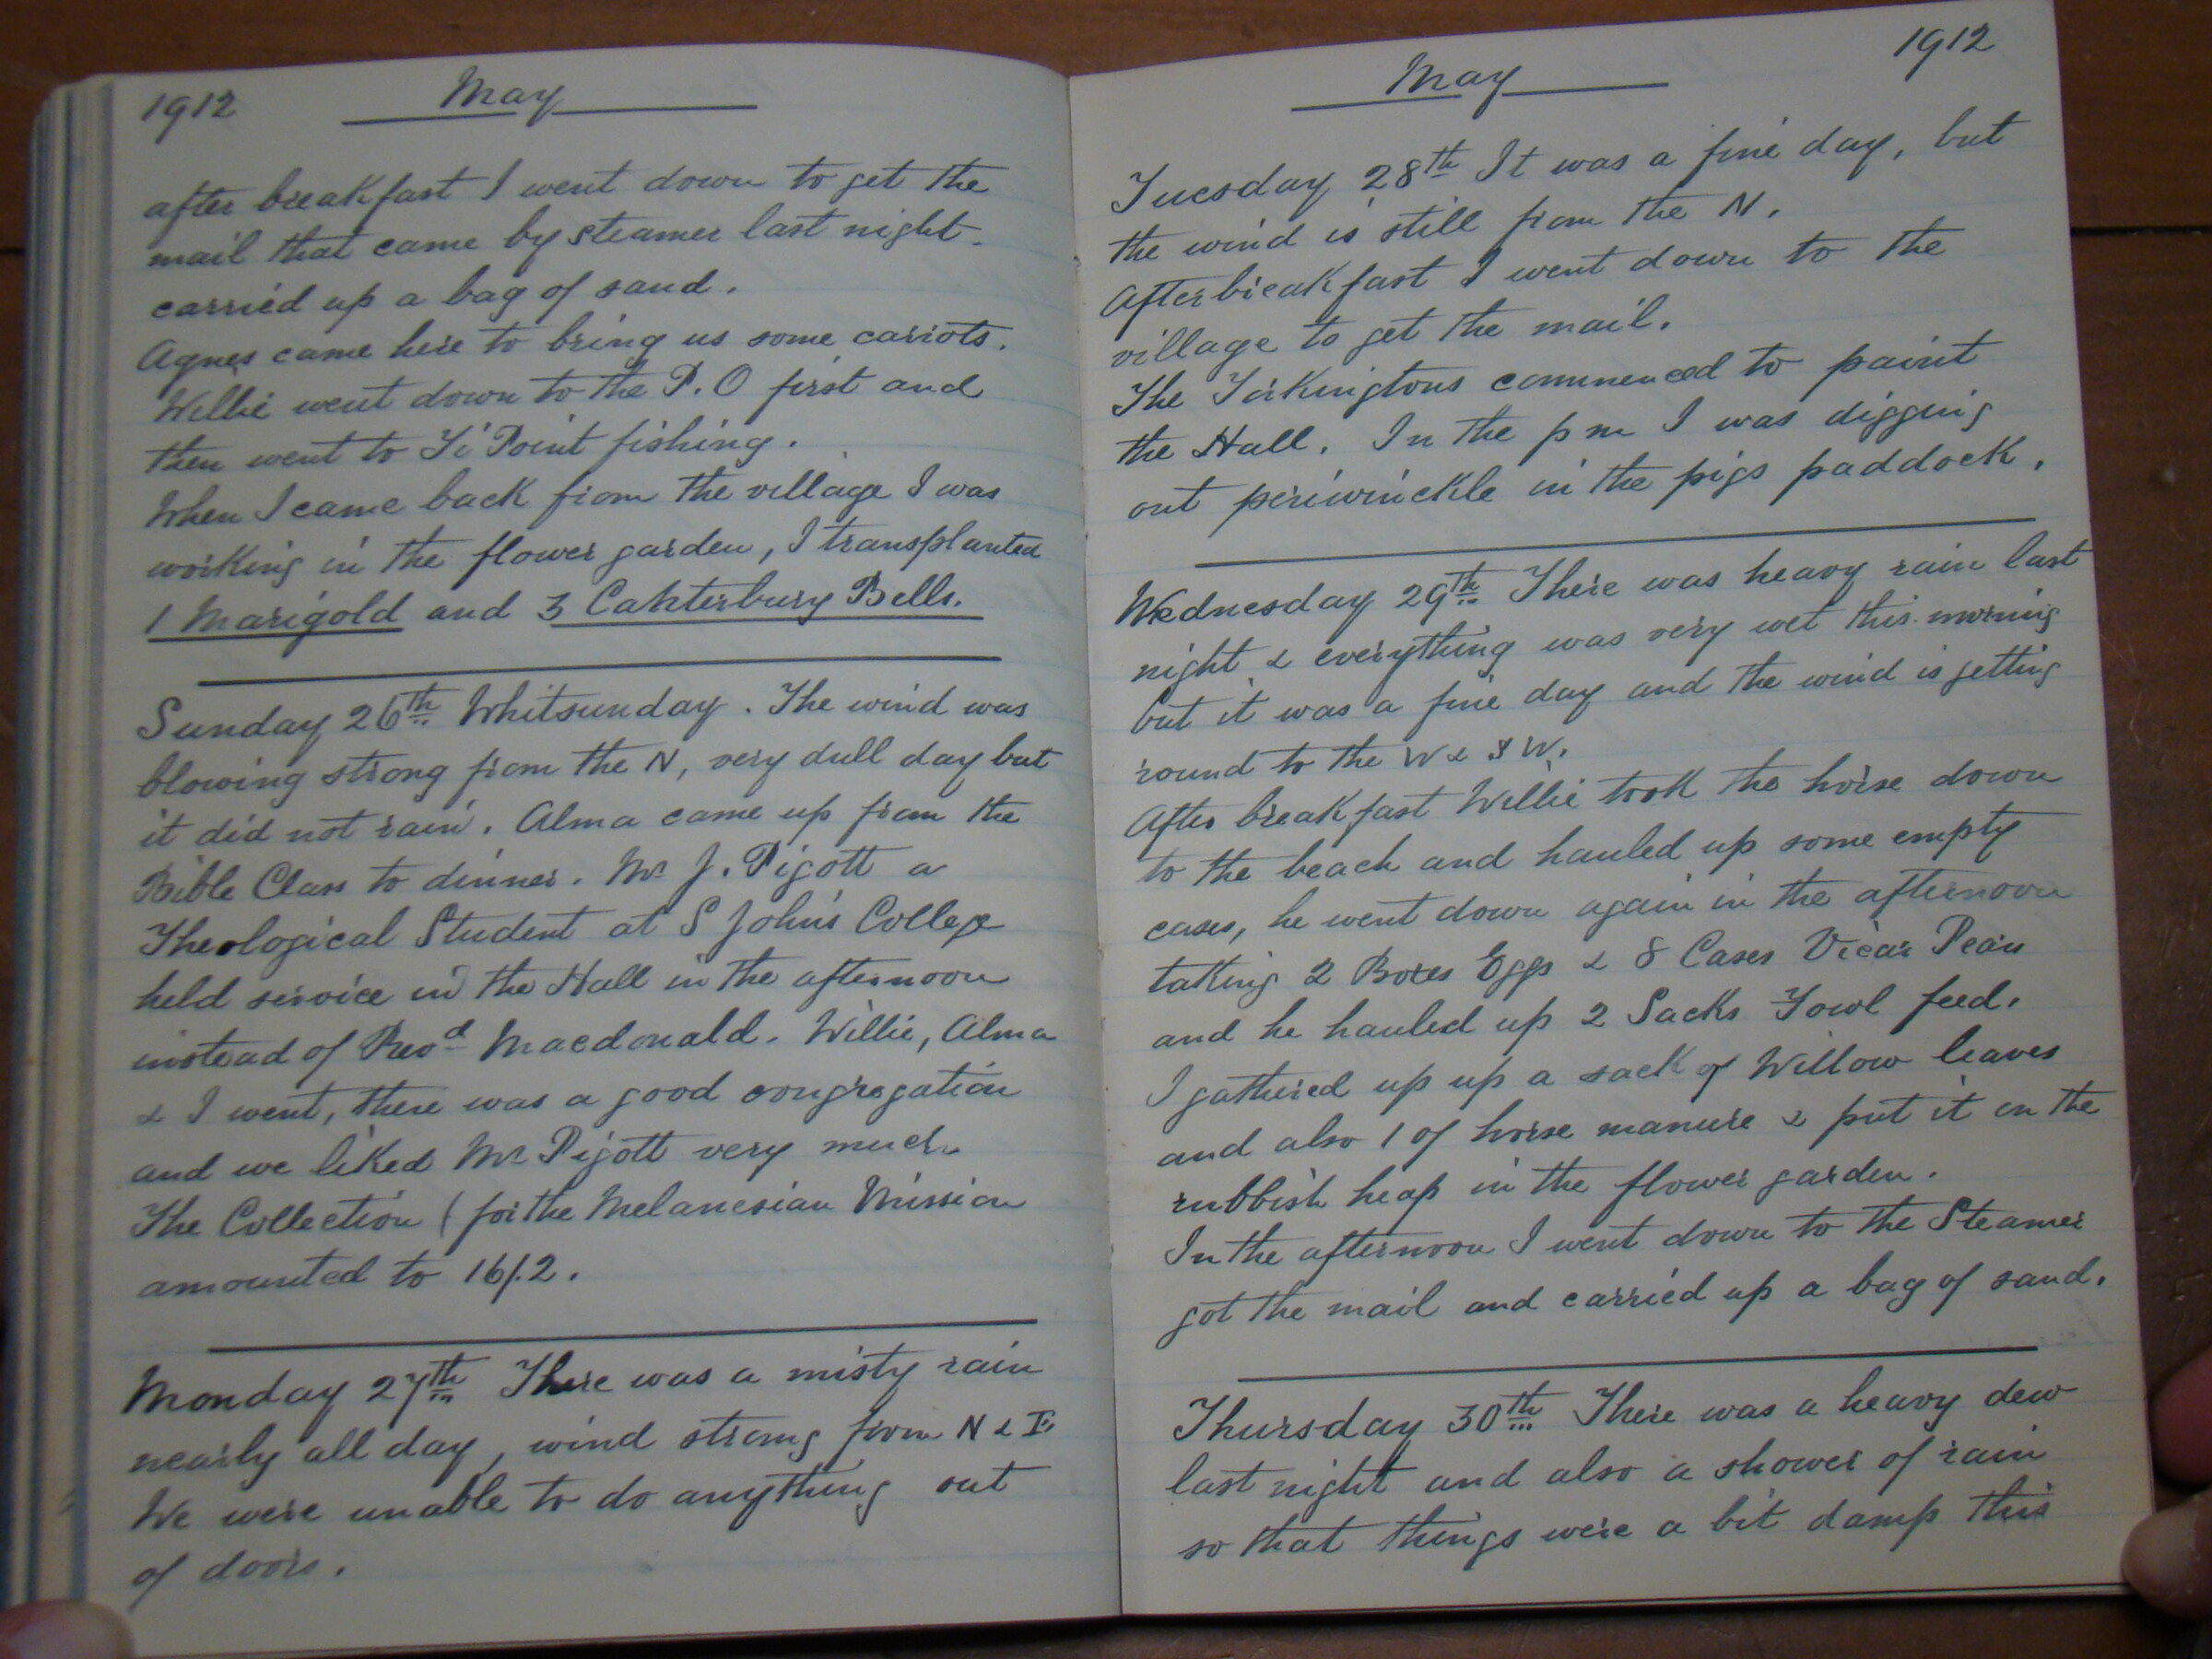 1912 May
after breakfast I went down to get the
mail that came by steamer last night.
carried up a bag of sand.
Agnes came here to bring us some carrots.
Willie went down to the P.O first and
then went to Ti Point fishing.
When I came back from the village I was
working in the flower garden, I transplanted
1 Marigold and 3 Canterbury Bells.
Sunday 26th Whitsunday. The wind was
blowing strong from the N, very dull day but
it did not rain. Alma came up from the
Bible Class to dinner. Mr J. Pigott a
Theological Student at S John's College
held service in the Hall in the afternoon
instead of Revd Macdonald. Willie, Alma
& I went, there was a good congregation
and we liked Mr Pigott very much.
The Collection (for the Melanesian Mission
amounted to 16/.2.
Monday 27th There was a misty rain
nearly all day, wind strong from N & E
We were unable to do anything out
of doors.
May 1912
Tuesday 28th It was a fine day, but
the wind is still from the N.
After breakfast I went down to the
village to get the mail.
The Torkingtons commenced to paint
the Hall. In the pm I was digging
out periwinckle in the pigs paddock.
Wednesday 29th There was heavy rain last
night & everything was very wet this morning
but it was a fine day and the wind is getting
round to the W & SW.
After breakfast Willie took the horse down
to the beach and hauled up some empty
cases, he went down again in the afternoon
taking 2 Boxes Eggs & 8 Cases Vicar Pears
and he hauled up 2 Sacks Fowl feed.
I gathered up up a sack of Willow leaves
and also 1 of horse manure & put it on the
rubbish heap in the flower garden.
In the afternoon I went down to the Steamer
got the mail and carried up a bag of sand.
Thursday 30th There was a heavy dew
last night and also a shower of rain
so that things were a bit damp this